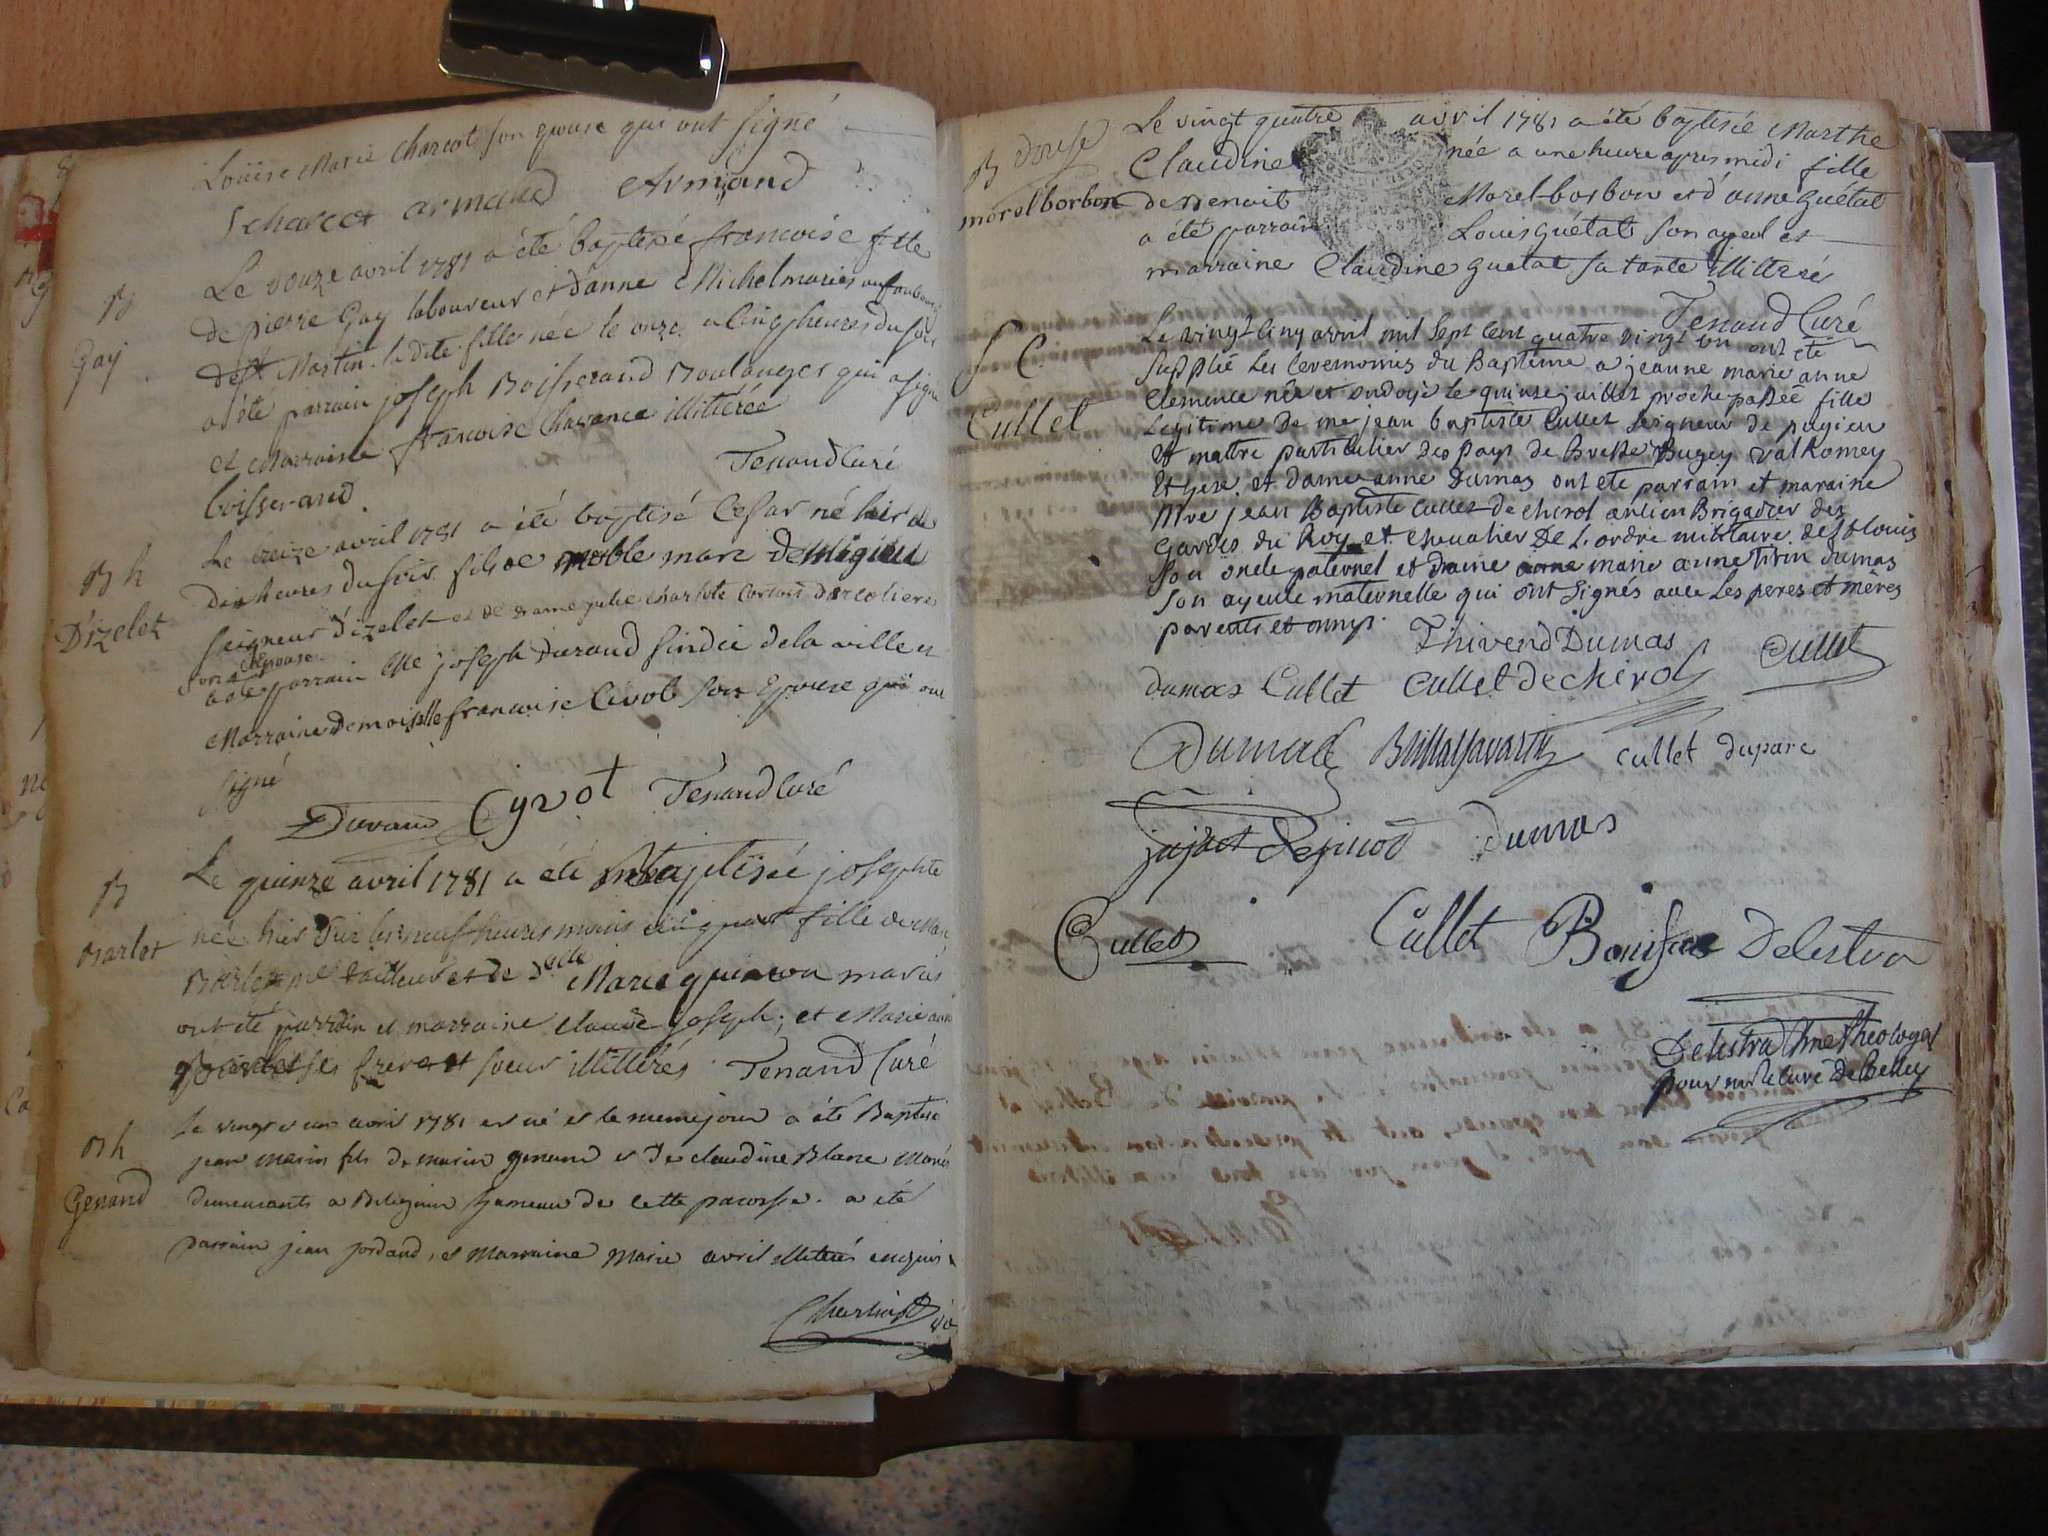 Louise Marie Charcot son epouse qui ont signé
l charcot armand Armand
B
Gay
Le douze avril 1781 a été baptisé francoise fille
de pierre Gay laboureur et d'anne Michel mariés au faubourg
de st Martin. la dite fille née le onze a cinq heures du soir
a été parrain joseph Boisserand Boulanger qui a signé
et Marraine francoise Chavance illitérée
boisserand Tenand Curé
B h
D'izelet
Le treize avril 1781 a été baptisé Cesar né hier
dix heures du soir fils de noble marc
seigneur d'izelet et de dame julie charlotte d'arcolieres
son epouse
a été parrain Me joseph Durand sindic de la ville et
Marraine Demoiselle francoise Civot son Epouse qui ont
signé
Durand Cyvot Tenand Curé
B
Barlet
Le quinze avril 1781 a été baptisée josephte
née hier sur les neuf heures moins un quart fille de
Barlet me tailleur et de dlle Marie quinson mariés
ont été parrain et marraine claude joseph; et Marie
ses frere et soeur illittérés Tenand Curé
B h
Genand
Le vingt et un avril 1781 est né et le meme jour a été Baptisé
jean marin fils de marin genand et de claudine Blanc Mariés
demeurants a hameau de cette paroisse. a été
parrain jean jordand, et marraine Marie avril illiterés enquis
B
morel borbon
Le vingt quatre avril 1781 a été baptisée Marthe
Claudine née a une heure apres midi fille
de Benoit Morel-borbon et d'anne Guétat
a été parrain Louis Guétat son ayeul et
marraine Claudine Guetat sa tante illitérés
Tenand Curé
S C
Cullet
Le vingt cinq avril mil sept cent quatre vingt un ont été
supplié les ceremonies du Baptême a jeanne marie anne
Clemence née et ondoyé le quinse juillet proche passée fille
Legitime de me jean baptiste Cullet Seigneur de pugieu
et maitre particulier des pays de Bresse Bugey Valromey
et Gex. et dame anne Dumas ont été parrain et maraine
Mre jean Baptiste Cullet de chirol ancien Brigadier des
Gardes du Roy et chevalier de L'ordre militaire de st louis
son oncle paternel et dame marie anne Dumas
son ayeule maternelle qui ont signés avec Les peres et mères
parents et amys.
Thivend Dumas
dumas Cullet Cullet de chirol Cullet
Dumas Brillat Savarin Cullet duparc
dumas
Cullet Cullet Boniface Delestra
Delestra chne theologal
pour mr le curé de Belley